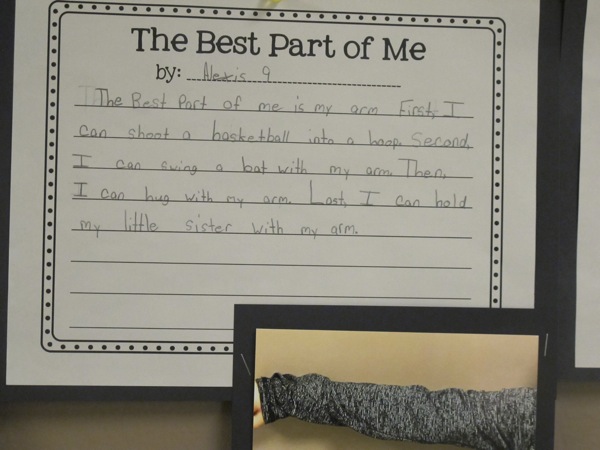 The Best Part of Me
by: Alexis 9
The Best Part of me is my arm First, I
can shoot a basketball into a hoop. Second,
I can swing a bat with my arm. Then,
I can hug with my arm. Last, I can hold
my little sister with my arm.